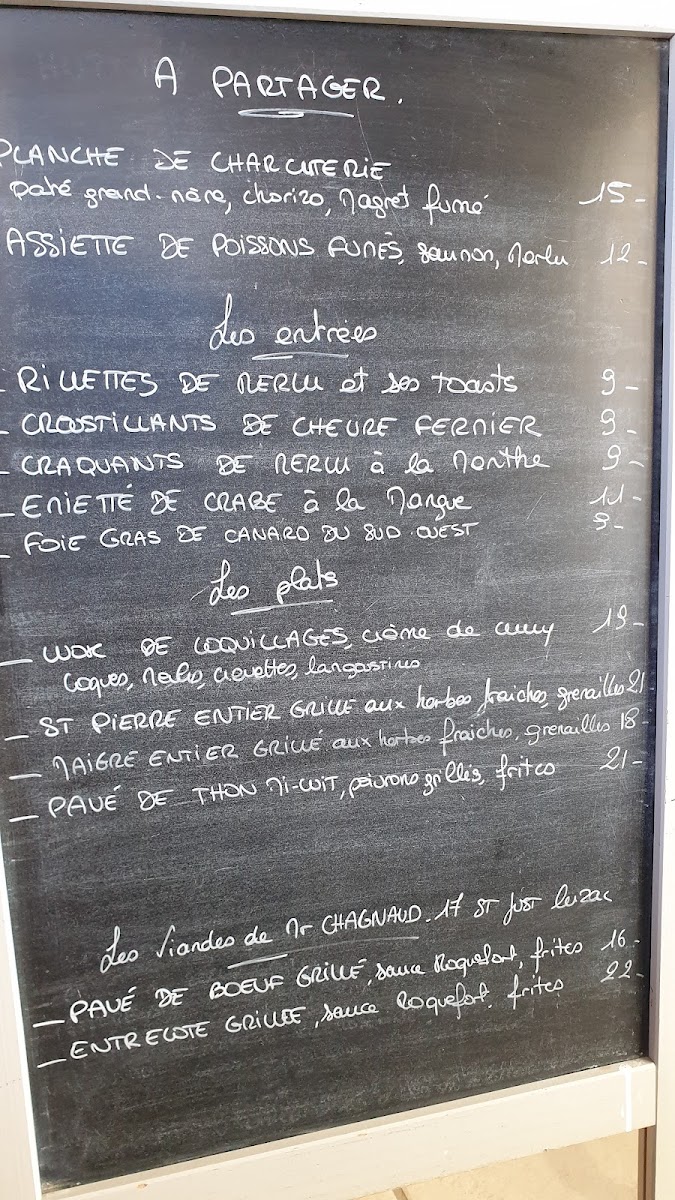 A PARTAGER.
PLANCHE DE CHARCUTERIE
paté grand-mère, chorizo, Magret fumé 15-
ASSIETTE DE POISSONS FUMÉS, saumon, Merlu 12-
Les entrées
- RILLETTES DE MERLU et ses toasts 9-
- CROUSTILLANTS DE CHEVRE FERMIER 9-
- CRAQUANTS DE MERLU à la Menthe 9-
- EMIETTÉ DE CRABE à la Mangue 11-
- FOIE GRAS DE CANARD DU SUD OUEST 9-
Les plats
- WOK DE COQUILLAGES, crème de curry 19-
Coques, Merlu, crevettes, langoustines
- ST PIERRE ENTIER GRILLE aux herbes fraiches, grenailles 21
- MAIGRE ENTIER GRILLÉ aux herbes fraiches, grenailles 18-
- PAVÉ DE THON MI-CUIT, poivrons grillés, frites 21-
Les Viandes de Mr CHAGNAUD. 17 ST JUST luzac
- PAVÉ DE BOEUF GRILLÉ, sauce Roquefort, frites 16-
- ENTRECOTE GRILLEE, sauce Roquefort, frites 22-